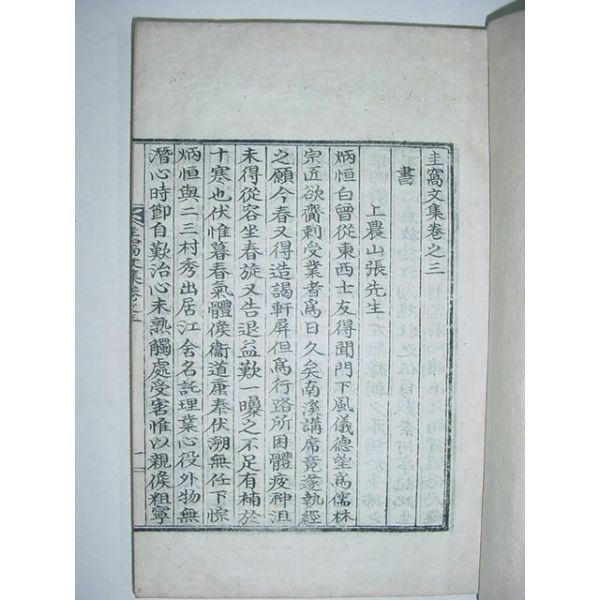 圭窩文集卷之三
書
上農山張先生
炳恒白曾從東西士友得聞門下風儀德望爲儒林
宗匠欲齎刺受業者爲日久矣南溪講席竟遂執經
之願今春又得造謁軒屏但爲行路所困體疲神沮
未得從容坐春旋又告退益歎一曝之不足有補於
十寒也伏惟暮春氣體候衞道康泰伏溯無任下悰
炳恒與二三村秀出居江舍名託理業心役外物無
潛心時節自歎治心未熟觸處受害惟以親候粗寧
圭窩文集卷之三
一